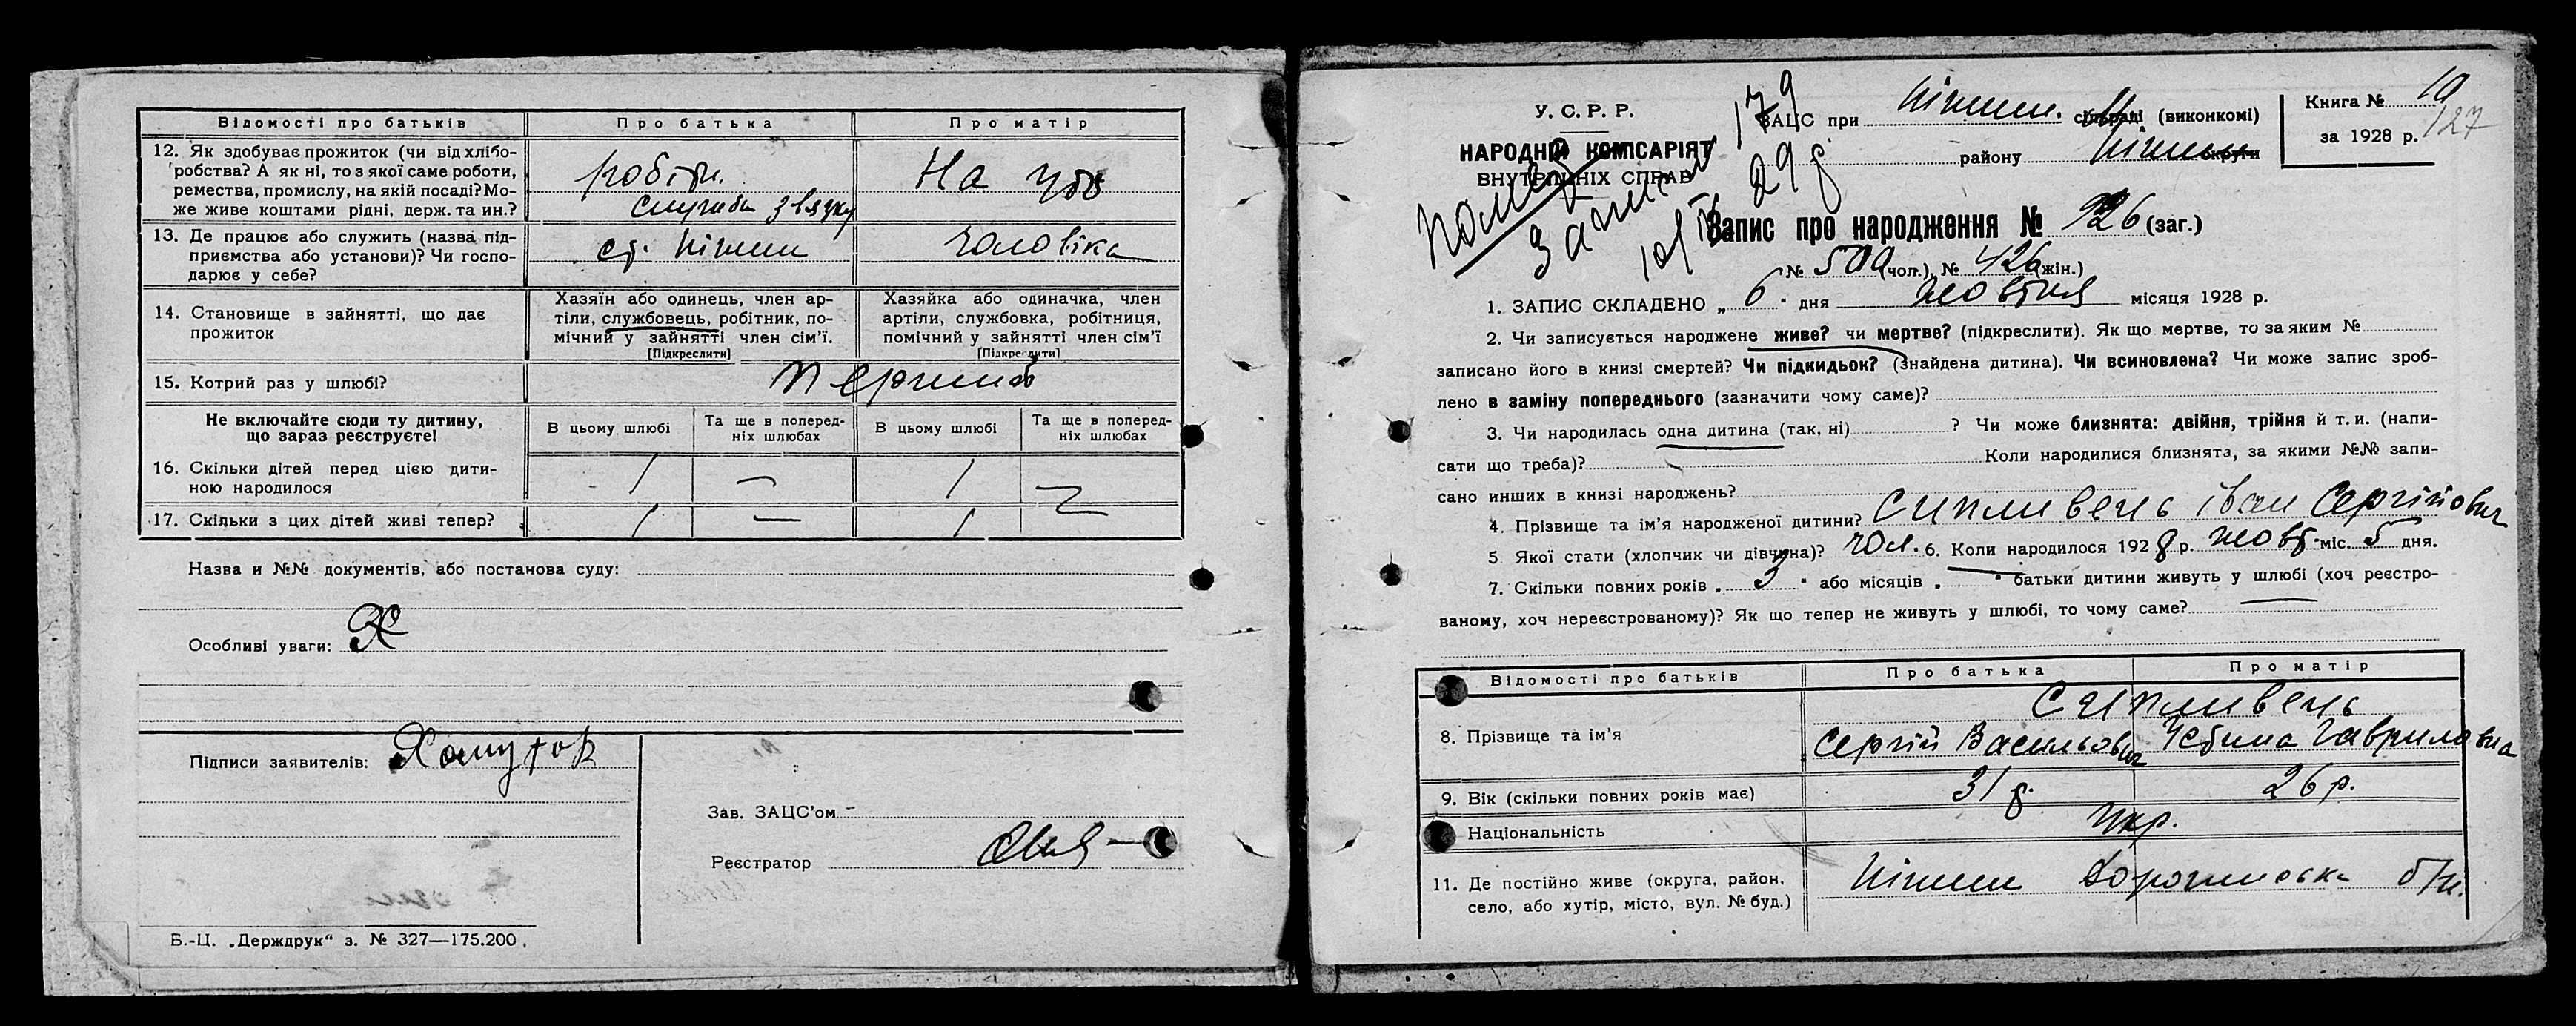 Відомості про батьків Про батька Про матір
12. Як здобуває прожиток (чи від хлібо-
робства? А як ні, то з якої саме роботи,
ремества, промислу, на якій посаді? Мо-
же живе коштами рідні, держ. та ин.?
робітн. На утр
служби звязку
13. Де працює або служить (назва під-
приємства або установи)? Чи госпо-
дарює у себе?
ст. Ніжин чоловіка
14. Становище в зайнятті, що дає
прожиток
Хазяїн або одинець, член ар-
тіли, службовець, робітник, по-
мічний у зайнятті член сім’ї.
[Підкреслити]
Хазяйка або одиначка, член
артіли, службовка, робітниця,
помічний у зайнятті член сім’ї
[Підкреслити]
15. Котрий раз у шлюбі? перший
Не включайте сюди ту дитину,
що зараз реєструєте!
В цьому шлюбі Та ще в поперед-
ніх шлюбах В цьому шлюбі Та ще в поперед-
ніх шлюбах
16. Скільки дітей перед цією дити-
ною народилося 1 — 1 —
17. Скільки з цих дітей живі тепер? 1 — 1 —
Назва и №№ документів, або постанова суду:
Особливі уваги:
Підписи заявителів:
Зав. ЗАЦС’ом
Реєстратор
Б.-Ц. „Держдрук“ з. № 327—175.200.
У. С. Р. Р.
НАРОДНІЙ КОМІСАРІЯТ
ВНУТРІШНІХ СПРАВ
179
29 р
ЗАЦС при Ніжин. сільраді (виконкомі)
району Ніжин округи
Книга № 10
за 1928 р.
127
Запис про народження № 926 (заг.)
№ 500 (чол.), № 426 (жін.)
1. ЗАПИС СКЛАДЕНО „ 6 “ дня жовтня місяця 1928 р.
2. Чи записується народжене живе? чи мертве? (підкреслити). Як що мертве, то за яким №
записано його в книзі смертей? Чи підкидьок? (знайдена дитина). Чи всиновлена? Чи може запис зроб-
лено в заміну попереднього (зазначити чому саме)?
3. Чи народилась одна дитина (так, ні) ? Чи може близнята: двійня, трійня й т. и. (напи-
сати що треба)? Коли народилися близнята, за якими №№ запи-
сано инших в книзі народжень?
4. Прізвище та ім’я народженої дитини? Сипливець Іван Сергійович
5. Якої стати (хлопчик чи дівчина)? чол. 6. Коли народилося 1928 р. жовт. міс. 5 дня.
7. Скільки повних років „ 3 “ або місяців „ “ батьки дитини живуть у шлюбі (хоч реєстро-
ваному, хоч нереєстрованому)? Як що тепер не живуть у шлюбі, то чому саме?
Відомості про батьків Про батька Про матір
8. Прізвище та ім’я
Сипливець
Сергій Васильович Гаврилавна
9. Вік (скільки повних років має) 31 р. 26 р.
Національність Укр.
11. Де постійно живе (округа, район,
село, або хутір, місто, вул. № буд.)
Ніжин б/н.